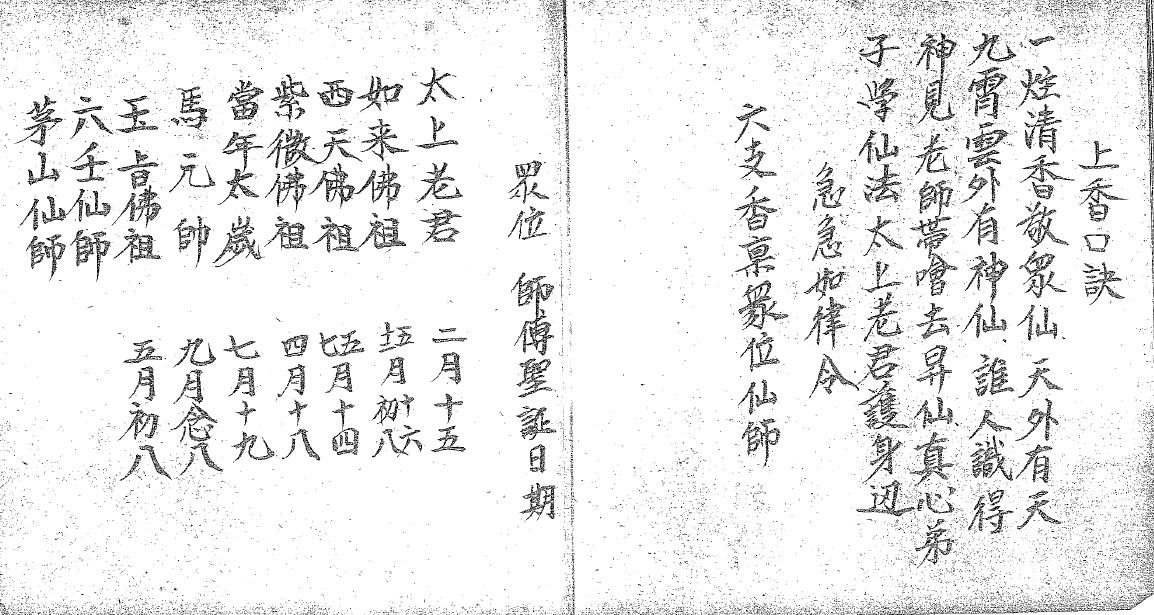 上香口訣
一炷清香敬眾仙 天外有天
九霄雲外有神仙 誰人識得
神見老師帶噲去昇仙真心弟
子学仙法太上老君護身辺
急急如律令
六支香稟眾位仙師
眾位 師傅聖誕日期
太上老君 二月十五
如来佛祖 十五月初八 十六
西天佛祖 七五月十四
紫微佛祖 四月十八
當年太歲 七月十九
馬元帥 九月念八
玉吉佛祖 五月初八
六壬仙師
茅山仙師